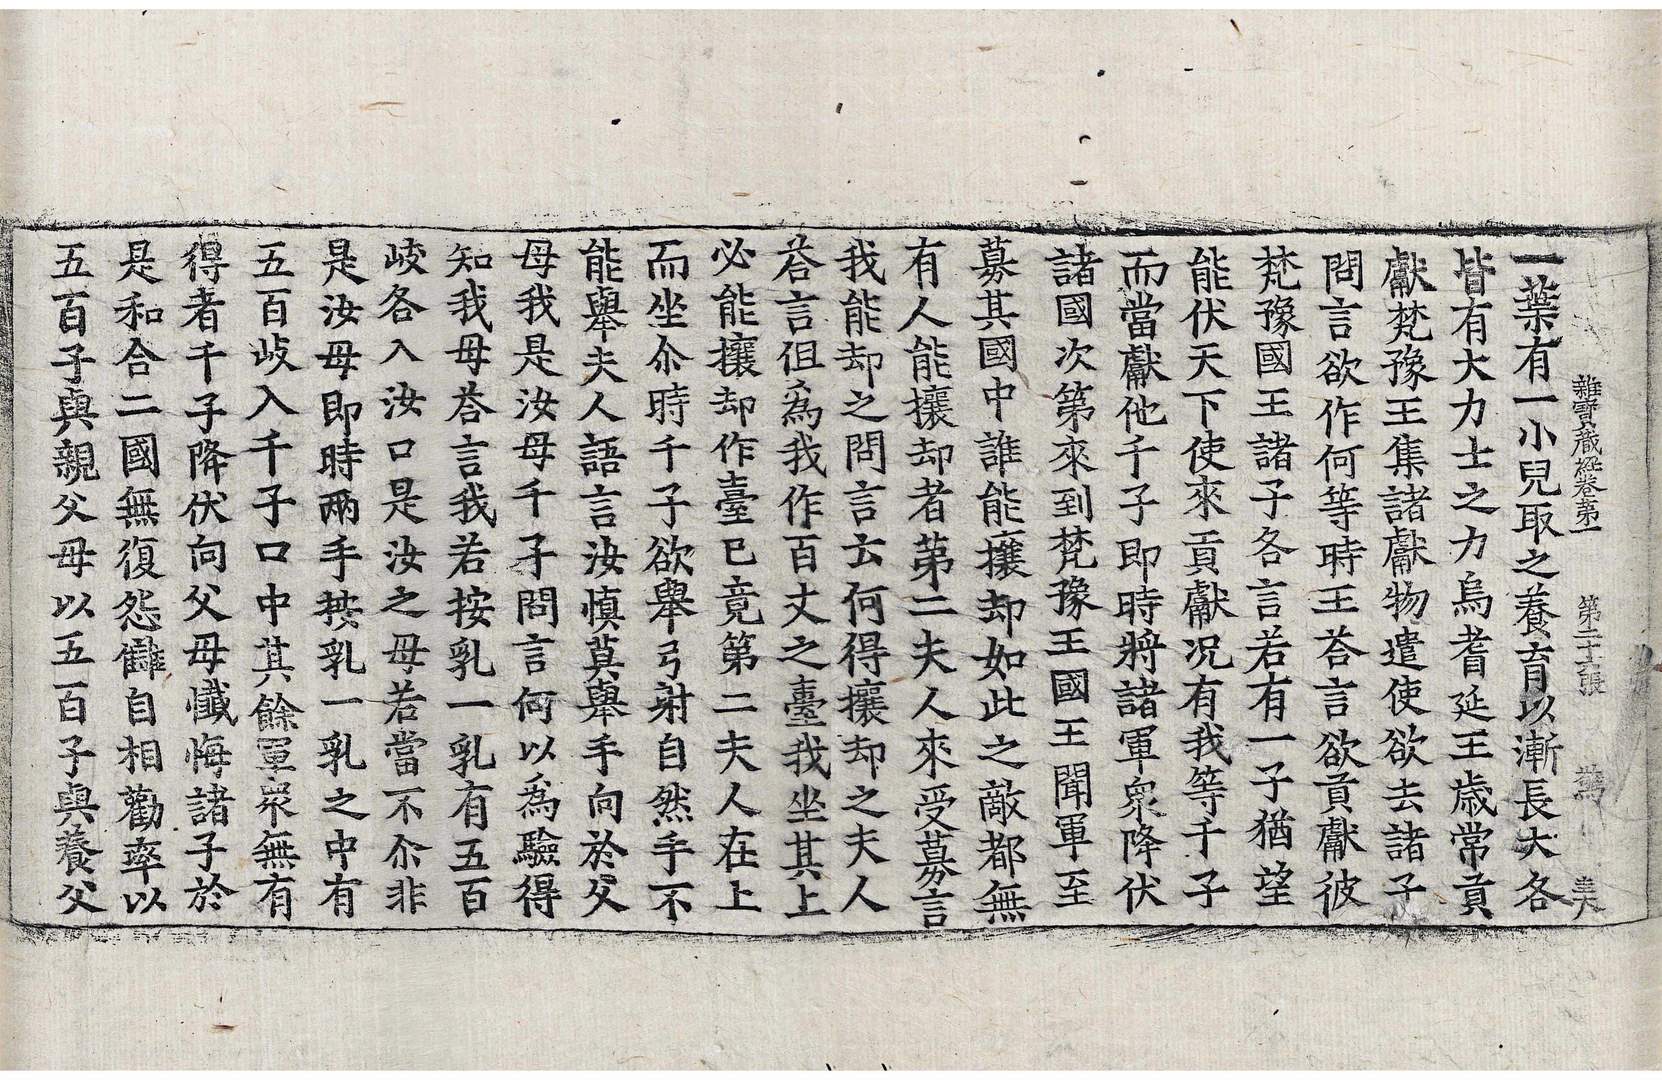 雜寶藏經卷第一 第二十六張 驚
一葉有一小兒取之養育以漸長大各
皆有大力士之力烏耆延王歳常貢
獻梵豫王集諸獻物遣使欲去諸子
問言欲作何等時王荅言欲貢獻彼
梵豫國王諸子各言若有一子猶望
能伏天下使來貢獻况有我等千子
而當獻他千子即時將諸軍衆降伏
諸國次第來到梵豫王國王聞軍至
募其國中誰能攘却如此之敵都無
有人能攘却者第二夫人來受募言
我能却之問言云何得攘却之夫人
荅言但爲我作百丈之臺我坐其上
必能攘却作臺已竟第二夫人在上
而坐尒時千子欲舉弓射自然手不
能舉夫人語言汝慎莫舉手向於父
母我是汝母千子問言何以爲驗得
知我母荅言我若按乳一乳有五百
岐各入汝口是汝之母若當不尒非
是汝母即時兩手按乳一乳之中有
五百岐入千子口中其餘軍衆無有
得者千子降伏向父母懺悔諸子於
是和合二國無復怨讎自相勸率以
五百子與親父母以五百子與養父